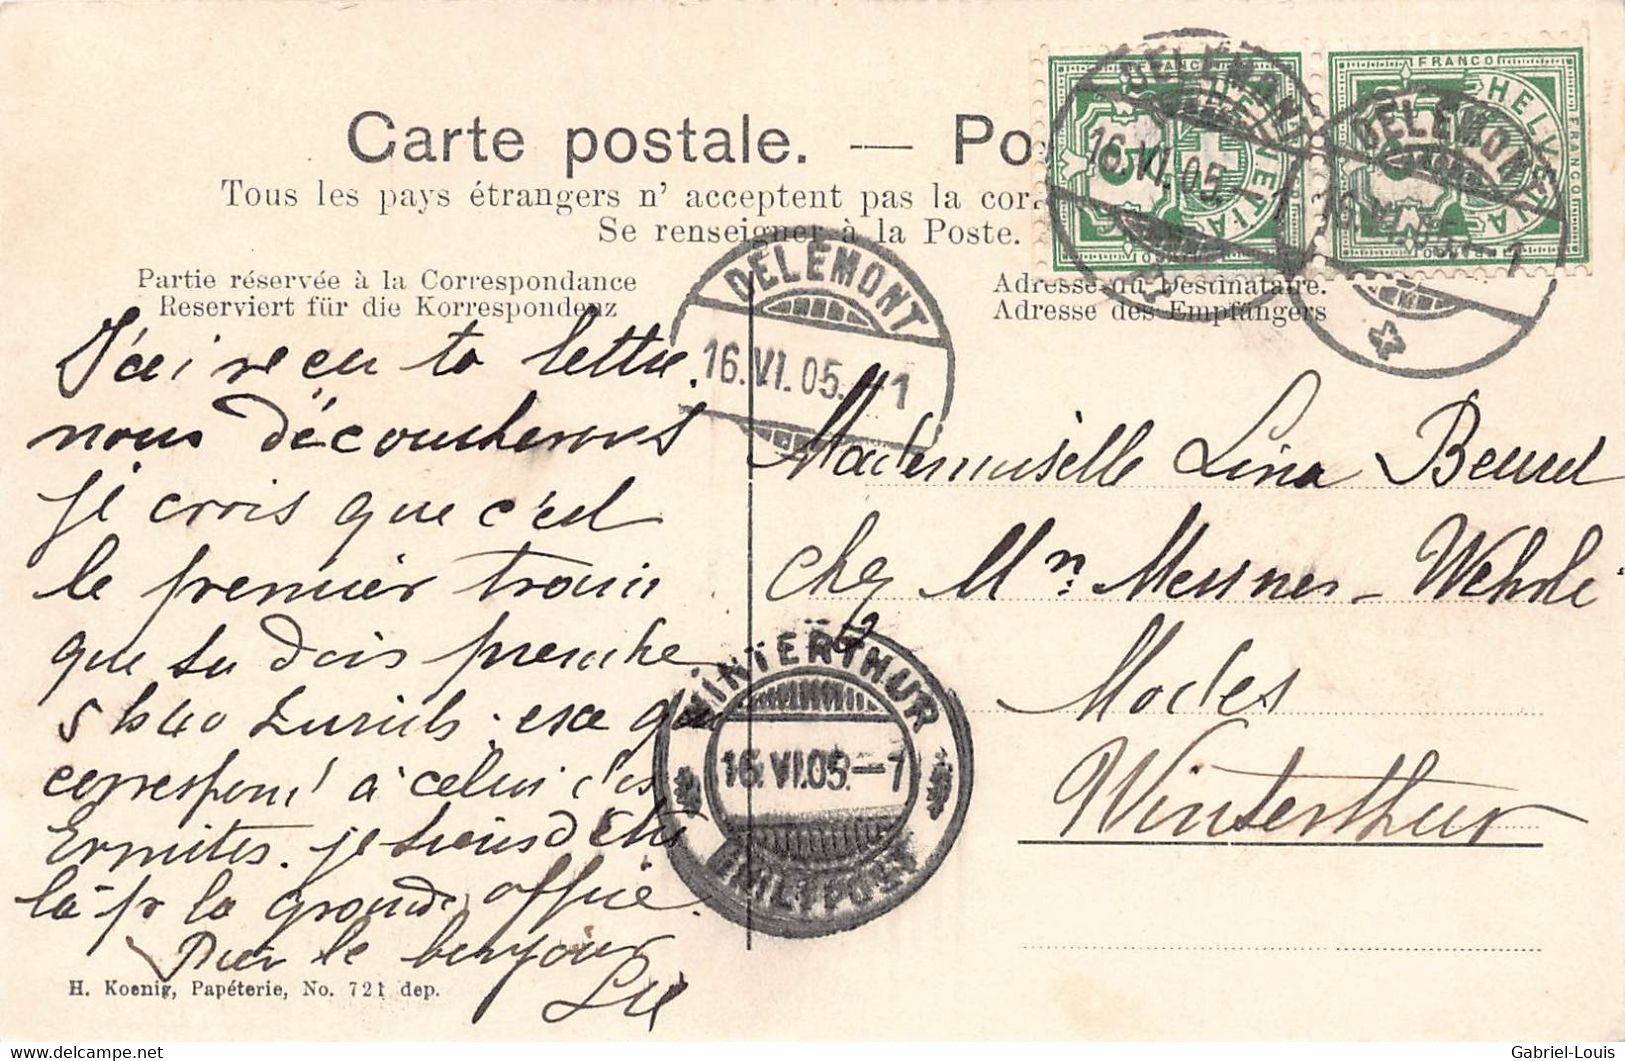 Carte postale. — Po
Tous les pays étrangers n' acceptent pas la cor
Se renseigner à la Poste.
Partie réservée à la Correspondance
Reserviert für die Korrespondenz
Adresse du Destinataire.
Adresse des Empfängers
FRANCO HELVETIA
FRANCO HELVETIA
DELÉMONT
16.VI.05.-1
DELÉMONT
16.VI.05.-1
DELÉMONT
16.VI.05.-1
J'ai reçu ta lettre.
nous découcherons
je crois que c'est
le premier train
que tu dois prendre
5 h 40 Zurich.
correspond à celui des
Ermites. je
là pr la grande office.
le bonjour
Mademoiselle Lina
chez Mr. Messner-Wehrle
Modes
Winterthur
WINTERTHUR
16.VI.05.-7
H. Koenig, Papéterie, No. 721 dep.
Gabriel-Louis